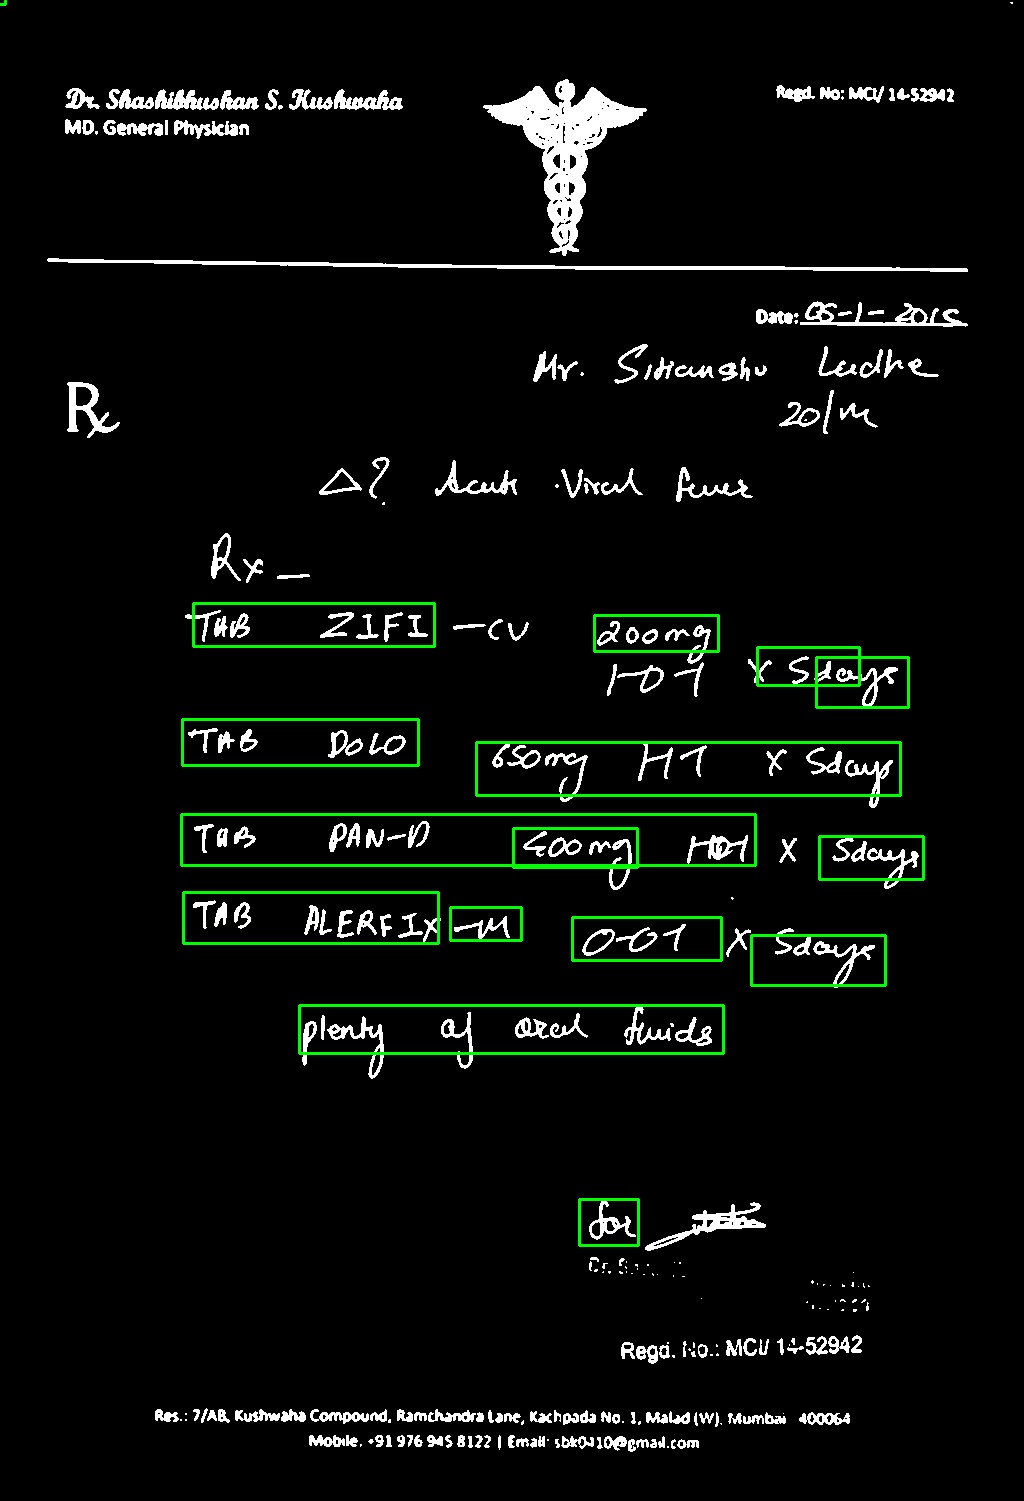 Dr. Shashibhushan S. Kushwaha
MD. General Physician
Regd. No: MCI/ 14-52942
Date: 05-1-2015
Mr. Sitianshu Ladhe
20/M
Rx
Δ? Acute Viral fever
Rx —
TAB ZIFI -CV 200mg
1-0-1 X 5days
TAB DOLO 650mg 1-1-1 X 5days
TAB PAN-D 400mg 1-0-1 X 5days
TAB ALERFIX -M 0-0-1 X 5days
plenty of oral fluids
for
Regd. No.: MCI/ 14-52942
Res.: 7/AB, Kushwaha Compound, Ramchandra Lane, Kachpada No. 1, Malad (W), Mumbai 400064
Mobile. +91 976 945 8122 | Email: sbk0410@gmail.com